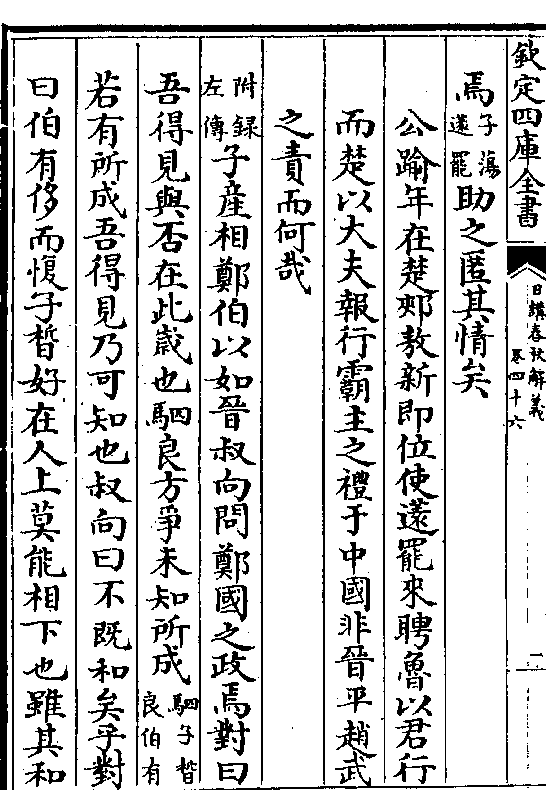 欽定四庫全書
日講春秋解義
卷四十六
二
焉子蕩
薳罷助之匿其情矣
公踰年在楚郟敖新即位使薳罷來聘魯以君行
而楚以大夫報行霸主之禮于中國非晉平趙武
之責而何哉
附録
左傳子產相鄭伯以如晉叔向問鄭國之政焉對曰
吾得見與否在此歲也駟良方爭未知所成駟子晳
良伯有
若有所成吾得見乃可知也叔向曰不既和矣乎對
曰伯有侈而愎子晳好在人上莫能相下也雖其和